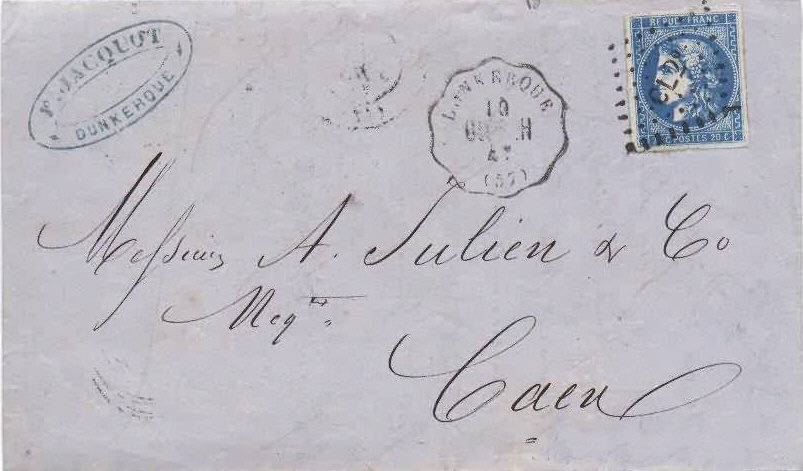 F. JACQUOT
DUNKERQUE
DUNKERQUE
10
47
(57)
REPUB. FRANC.
POSTES 20 C
Messieurs A. Julien & Co
Negts
Caen